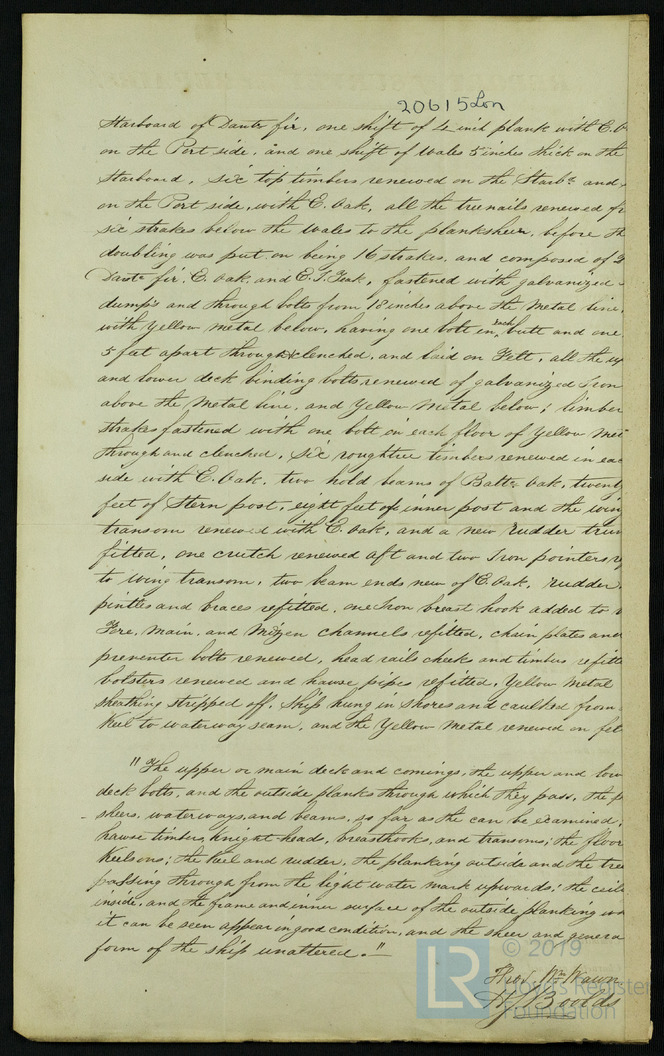 20615 Lon
Starboard of Dantz fir, one shift of 4 inch plank with E.
on the Port side, and one shift of Wales 5 inches thick on the
Starboard, Six top timbers renewed on the Starbd and
on the Port side, with E. Oak, all the treenails renewed
six strakes below the Wales to the planksheer, before th
doubling was put on being 16 strakes, and composed of
Dantz fir, E. Oak and E. I. Teak, fastened with galvanized
dumps and through bolts from 18 inches above the Metal line,
with Yellow metal below, having one bolt in each butt and one
5 feet apart through & clenched, and laid on Felt, all the up
and lower deck binding bolts renewed of galvanized Iron
above the Metal line, and Yellow Metal below; limber
strakes fastened with one bolt in each floor of Yellow Met
through and clenched, Six roughtree timbers renewed in eac
side with E. Oak, two hold beams of Baltc Oak, twenty
feet of Stern post, eight feet of inner post and the wing
transom renewed with E. Oak, and a new Rudder trun
fitted, one crutch renewed aft and two Iron pointers
to wing transom, two beam ends new of E. Oak, rudder
pintles and braces refitted, one Iron breast hook added to
Fore, Main, and Mizen channels refitted, chain plates and
preventer bolts renewed, head rails cheeks and timbers refitte
bolsters renewed and hawse pipes refitted, Yellow Metal
sheathing stripped off, Ship hung in Shores and caulked from
Keel to waterway seam, and the Yellow Metal renewed on fel
"The upper or main deck and comings, the upper and low
deck bolts, and the outside planks through which they pass, the p
sheers, waterways, and beams, so far as the can be examined;
hawse timbers, knight-heads, breasthooks, and transoms; the floor
Keelsons; the keel and rudder, the planking outside and the tree
passing through from the light water mark upwards; the ceil
inside, and the frame and inner surface of the outside planking wh
it can be seen appear in good condition, and the sheer and genera
form of the ship unaltered."
Thos. Wm Wawn
H J Boolds
LR
© 2019
Lloyd's Register
Foundation